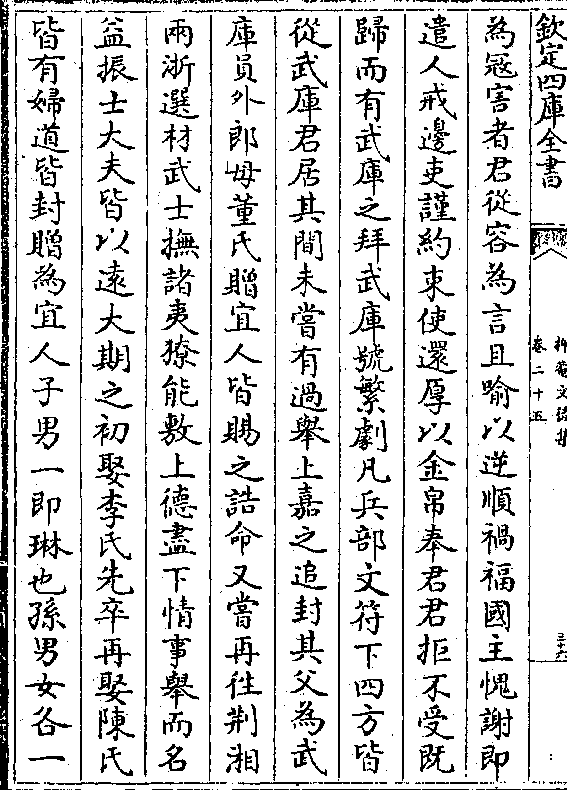 欽定四庫全書
卷二十五
為冦害者君從容為言且喻以逆順禍福國主愧謝即
遣人戒邊吏謹約束使還厚以金帛奉君君拒不受既
歸而有武庫之拜武庫號繁劇凡兵部文符下四方皆
從武庫君居其間未嘗有過舉上嘉之追封其父為武
庫員外郎母董氏贈宜人皆賜之誥命又嘗再徃荆湘
兩浙選材武士撫諸夷獠能敷上德盡下情事舉而名
益振士大夫皆以遠大期之初娶李氏先卒再娶陳氏
皆有婦道皆封贈為宜人子男一即琳也孫男女各一